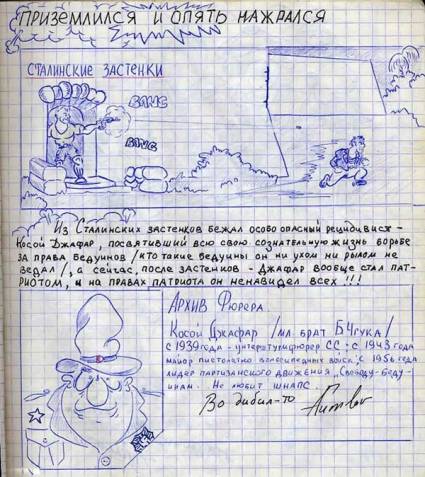 ПРИЗЕМЛИЛСЯ И ОПЯТЬ НАЖРАЛСЯ
СТАЛИНСКИЕ ЗАСТЕНКИ
БАМС
БАМС
Из Сталинских застенков бежал особо опасный рецидивист -
Косой Джафар, посвятивший всю свою сознательную жизнь борьбе
за права бедуинов /кто такие бедуины он ни ухом ни рылом не
ведал/, а сейчас, после застенков - Джафар вообще стал пат-
риотом, и на правах патриота он ненавидел всех !!!
Архив Фюрера
Косой Джафар /мл. брат
с 1939 года - СС; с 1943 года
майор войск; с 1956 года
лидер партизанского движения „Свободу-беду-
инам. Не любит шнапс.
Во дибил-то